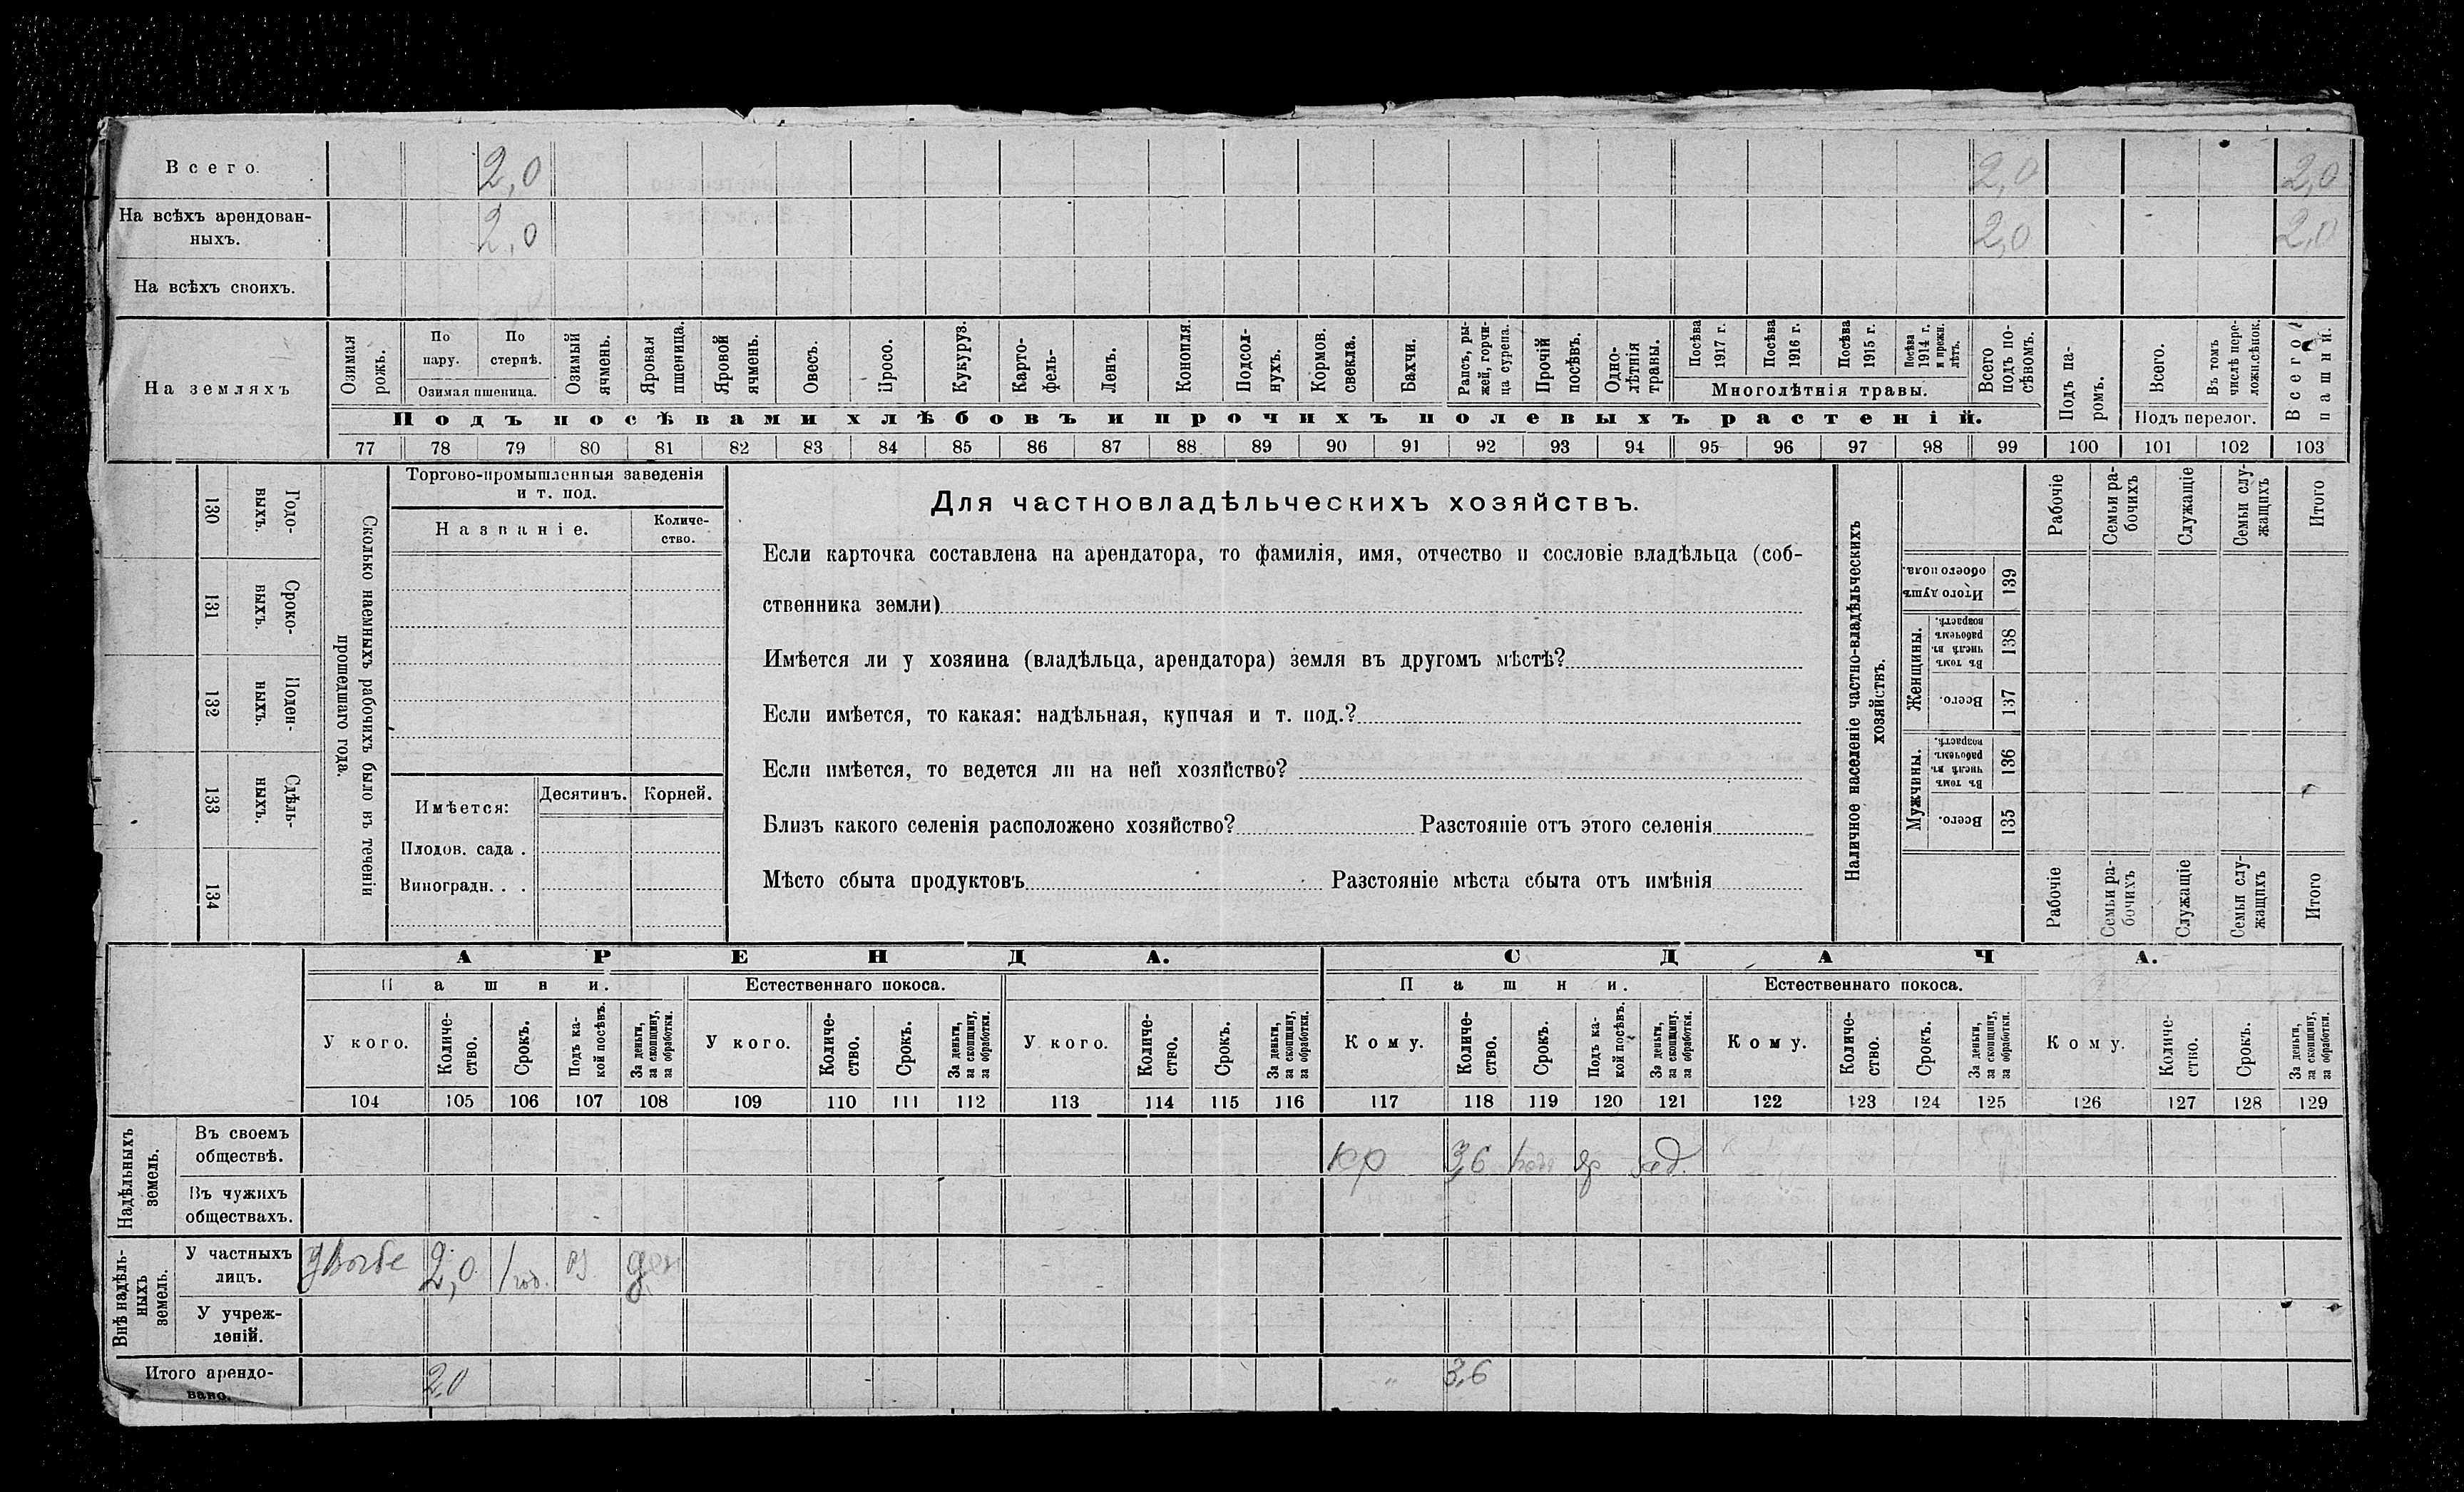 Всего. 2,0 2,0 2,0
На всѣхъ арендован-
ныхъ. 2,0 2,0 2,0
На всѣхъ своихъ.
На земляхъ
Озимая рожь.
По пару.
По стернѣ.
Озимая пшеница.
Озимый ячмень.
Яровая пшеница.
Яровой ячмень.
Овесъ.
Просо.
Кукуруз.
Карто-
фель-
Ленъ.
Конопля.
Подсол-
нухъ.
Кормов.
свекла.
Бахчи.
Рапсъ, ры-
жей, горчи-
ца сурепа.
Прочій
посѣвъ.
Одно-
лѣтнія
травы.
Посѣва
1917 г.
Посѣва
1916 г.
Посѣва
1915 г.
Посѣва
1914 г.
и прежн.
лѣтъ.
Многолѣтнія травы.
Всего
подъ по-
сѣвомъ.
Подъ па-
ромъ.
Всего.
Въ томъ
числѣ пере-
ложн.сѣнок.
Подъ перелог.
Всего
пашни.
Подъ посѣвами хлѣбовъ и прочихъ полевыхъ растеній.
77 78 79 80 81 82 83 84 85 86 87 88 89 90 91 92 93 94 95 96 97 98 99 100 101 102 103
Сколько наемныхъ рабочихъ было въ теченіи
прошедшаго года.
Годо-
выхъ.
130
Сроко-
выхъ.
131
Поден-
ныхъ.
132
Сдѣль-
ныхъ.
133
134
Торгово-промышленныя заведенія
и т. под.
Названіе.
Количе-
ство.
Имѣется:
Десятинъ. Корней.
Плодов. сада .
Виноградн. . .
Для частновладѣльческихъ хозяйствъ.
Если карточка составлена на арендатора, то фамилія, имя, отчество и сословіе владѣльца (соб-
ственника земли)
Имѣется ли у хозяина (владѣльца, арендатора) земля въ другомъ мѣстѣ?
Если имѣется, то какая: надѣльная, купчая и т. под.?
Если имѣется, то ведется ли на ней хозяйство?
Близъ какого селенія расположено хозяйство? Разстояніе отъ этого селенія
Мѣсто сбыта продуктовъ Разстояніе мѣста сбыта отъ имѣнія
Наличное населеніе частно-владѣльческихъ
хозяйствъ.
Рабочіе
Семьи ра-
бочихъ
Служащіе
Семьи слу-
жащихъ
Итого
Итого душъ
обоего пола.
139
Женщины.
Въ томъ
числѣ въ
рабочемъ
возрастѣ.
138
Всего.
137
Мужчины.
Въ томъ
числѣ въ
рабочемъ
возрастѣ.
136
Всего.
135
Рабочіе
Семьи ра-
бочихъ
Служащіе
Семьи слу-
жащихъ
Итого
АРЕНДА. СДАЧА.
Пашни. Естественнаго покоса. Пашни. Естественнаго покоса.
У кого.
Количе-
ство.
Срокъ.
Подъ ка-
кой посѣвъ.
За деньги,
за скопщину,
за обработки.
У кого.
Количе-
ство.
Срокъ.
За деньги,
за скопщину,
за обработки.
У кого.
Количе-
ство.
Срокъ.
За деньги,
за скопщину,
за обработки.
Кому.
Количе-
ство.
Срокъ.
Подъ ка-
кой посѣвъ.
За деньги,
за скопщину.
за обработки.
Кому.
Количе-
ство.
Срокъ.
За деньги,
за скопщину,
за обработки.
Кому.
Количе-
ство.
Срокъ.
За деньги,
за скопщину,
за обработки.
104 105 106 107 108 109 110 111 112 113 114 115 116 117 118 119 120 121 122 123 124 125 126 127 128 129
Надѣльныхъ
земель.
Въ своемъ
обществѣ. кр 3,6
Въ чужихъ
обществахъ.
Внѣ надѣль-
ныхъ
земель.
У частныхъ
лицъ. 2,0 1 год. оз ден
У учреж-
деній.
Итого арендо-
вано. 2,0 3,6